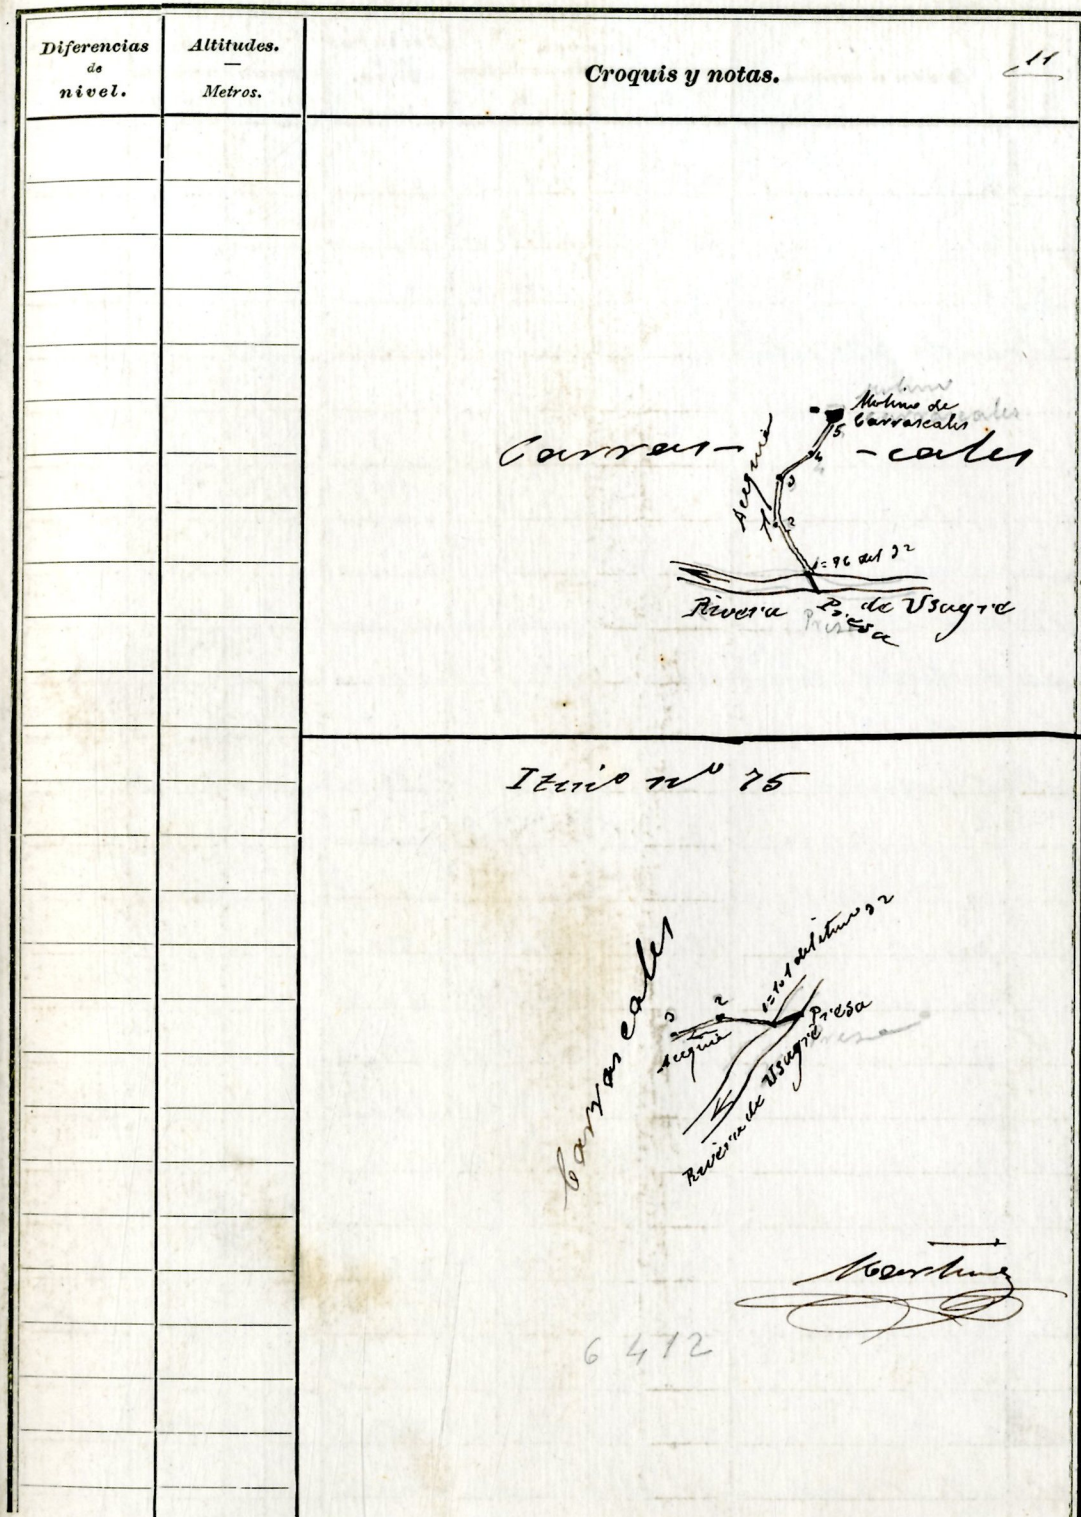 Diferencias
de
nivel.
Altitudes.
Metros.
Croquis y notas.
11
Molino de
Carrascales
Carras- -cales
Acequia
5
4
3
2
1=96 del 32
Rivera de Usagre
Presa
Presa
Itnio nº 75
Carrascales
1=101 del itnio 32
3
2
Acequia
Presa
Presa
Rivera de Usagre
Martinez
6412